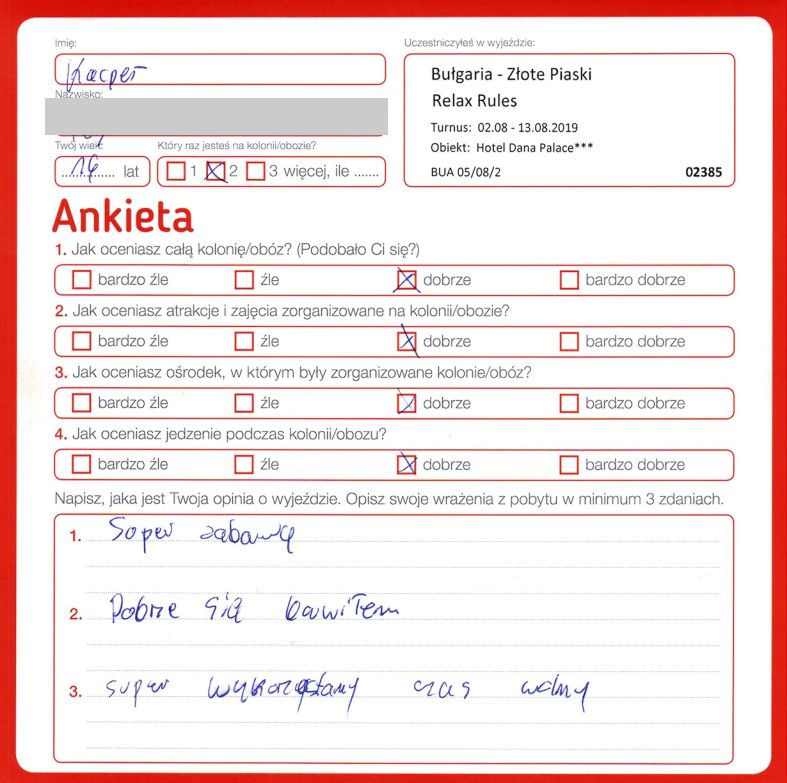 Imię:
Uczestniczyłeś w wyjeździe:
Kacper
Bułgaria - Złote Piaski
Nazwisko:
Relax Rules
Turnus: 02.08 - 13.08.2019
Twój wiek:
Który raz jesteś na kolonii/obozie?
Obiekt: Hotel Dana Palace***
14 lat
1 2 3 więcej, ile .......
BUA 05/08/2
02385
Ankieta
1. Jak oceniasz całą kolonię/obóz? (Podobało Ci się?)
bardzo źle źle dobrze bardzo dobrze
2. Jak oceniasz atrakcje i zajęcia zorganizowane na kolonii/obozie?
bardzo źle źle dobrze bardzo dobrze
3. Jak oceniasz ośrodek, w którym były zorganizowane kolonie/obóz?
bardzo źle źle dobrze bardzo dobrze
4. Jak oceniasz jedzenie podczas kolonii/obozu?
bardzo źle źle dobrze bardzo dobrze
Napisz, jaka jest Twoja opinia o wyjeździe. Opisz swoje wrażenia z pobytu w minimum 3 zdaniach.
1. Soper zabawę
2. Dobrze się bawiłem
3. super wykorzystany czas wolny